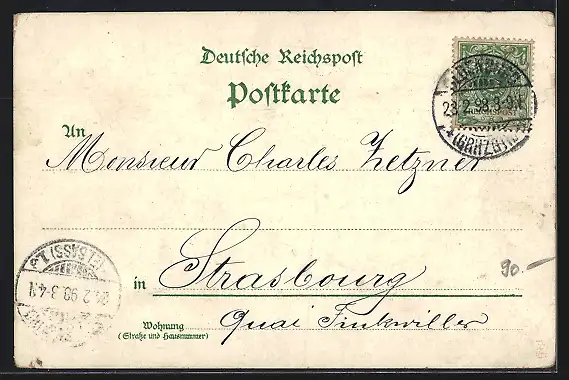 Deutsche Reichspost
Postkarte
An
Monsieur Charles Zetzner
in Strasbourg
Quai Finkwiller
Wohnung
(Straße und Hausnummer)
23.2.98.3-4N
(ELSASS) 1.
24.2.98.3-4.N
90.—